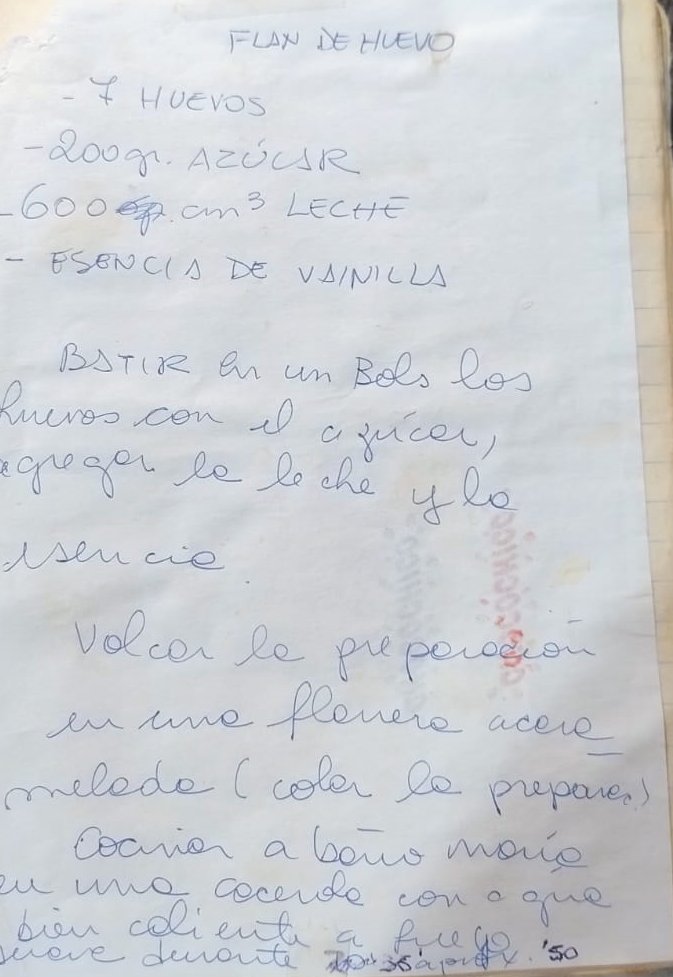 FLAN DE HUEVO
- 7 HUEVOS
- 200 gr. AZÚCAR
- 600 cm³ LECHE
- ESENCIA DE VAINILLA
BATIR en un Bols los
huevos con el azúcar,
agregar la leche y la
esencia
Volcar la preparación
en una flanera acara
melada (colar la preparac.)
Cocinar a baño maría
en una cacerola con agua
bien caliente a fuego
suave durante 35' aprox. '50